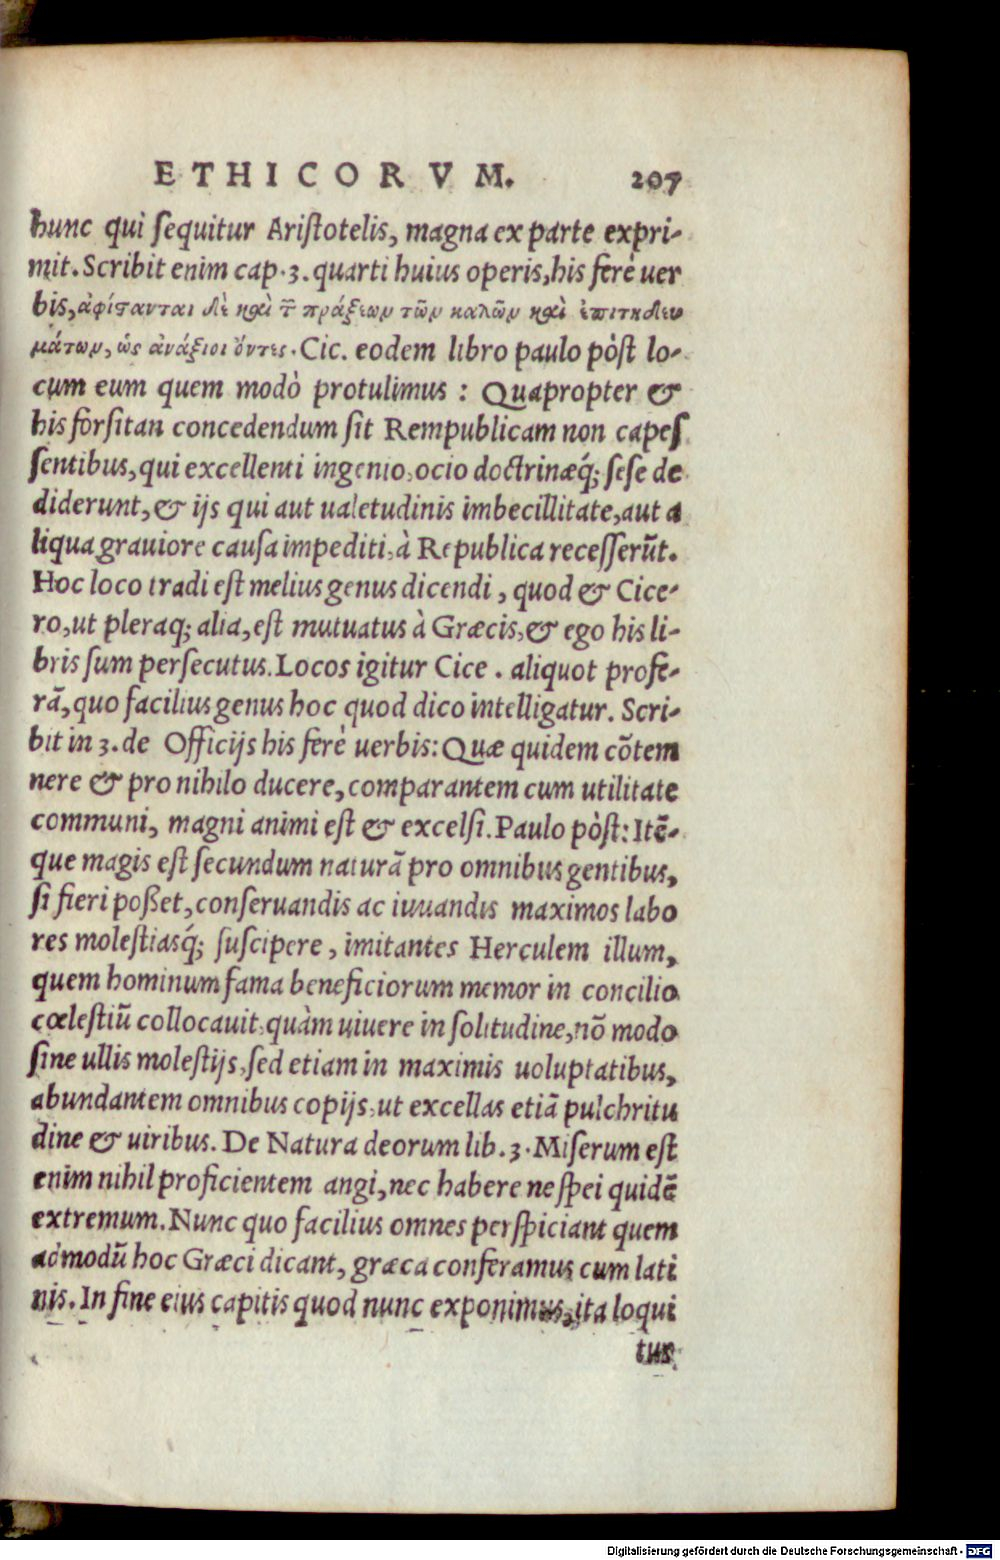 ETHICORVM. 207
hunc qui ſequitur Ariſtotelis, magna ex parte expri-
mit. Scribit enim cap. 3. quarti huius operis, his ferè uer
bis, ἀφίστανται δὲ καὶ τ͂ πράξεων τῶν καλῶν καὶ ἐπιτηδευ
μάτων, ὡς ἀνάξιοι ὄντες. Cic. eodem libro paulo pòſt lo-
cum eum quem modò protulimus : Quapropter &
his forſitan concedendum ſit Rempublicam non capeſ
ſentibus, qui excellenti ingenio, ocio doctrinæq́; ſeſe de
diderunt, & ijs qui aut ualetudinis imbecillitate, aut a
liqua grauiore cauſa impediti, à Republica receſſerũt.
Hoc loco tradi eſt melius genus dicendi, quod & Cice-
ro, ut pleraq; alia, eſt mutuatus à Græcis, & ego his li-
bris ſum perſecutus. Locos igitur Cice. aliquot profe-
rã, quo facilius genus hoc quod dico intelligatur. Scri-
bit in 3. de Officijs his ferè uerbis: Quæ quidem cõtem
nere & pro nihilo ducere, comparantem cum utilitate
communi, magni animi eſt & excelſi. Paulo pòſt: Itẽ-
que magis eſt ſecundum naturã pro omnibus gentibus,
ſi fieri poßet, conſeruandis ac iuuandis maximos labo
res moleſtiasq́; ſuſcipere, imitantes Herculem illum,
quem hominum fama beneficiorum memor in concilio
cœleſtiũ collocauit, quàm uiuere in ſolitudine, nõ modo
ſine ullis moleſtijs, ſed etiam in maximis uoluptatibus,
abundantem omnibus copijs, ut excellas etiã pulchritu
dine & uiribus. De Natura deorum lib. 3. Miſerum eſt
enim nihil proficientem angi, nec habere ne ſpei quidẽ
extremum. Nunc quo facilius omnes perſpiciant quem
admodũ hoc Græci dicant, græca conferamus cum lati
nis. In fine eius capitis quod nunc exponimus, ita loqui
tur
Digitalisierung gefördert durch die Deutsche Forschungsgemeinschaft - DFG